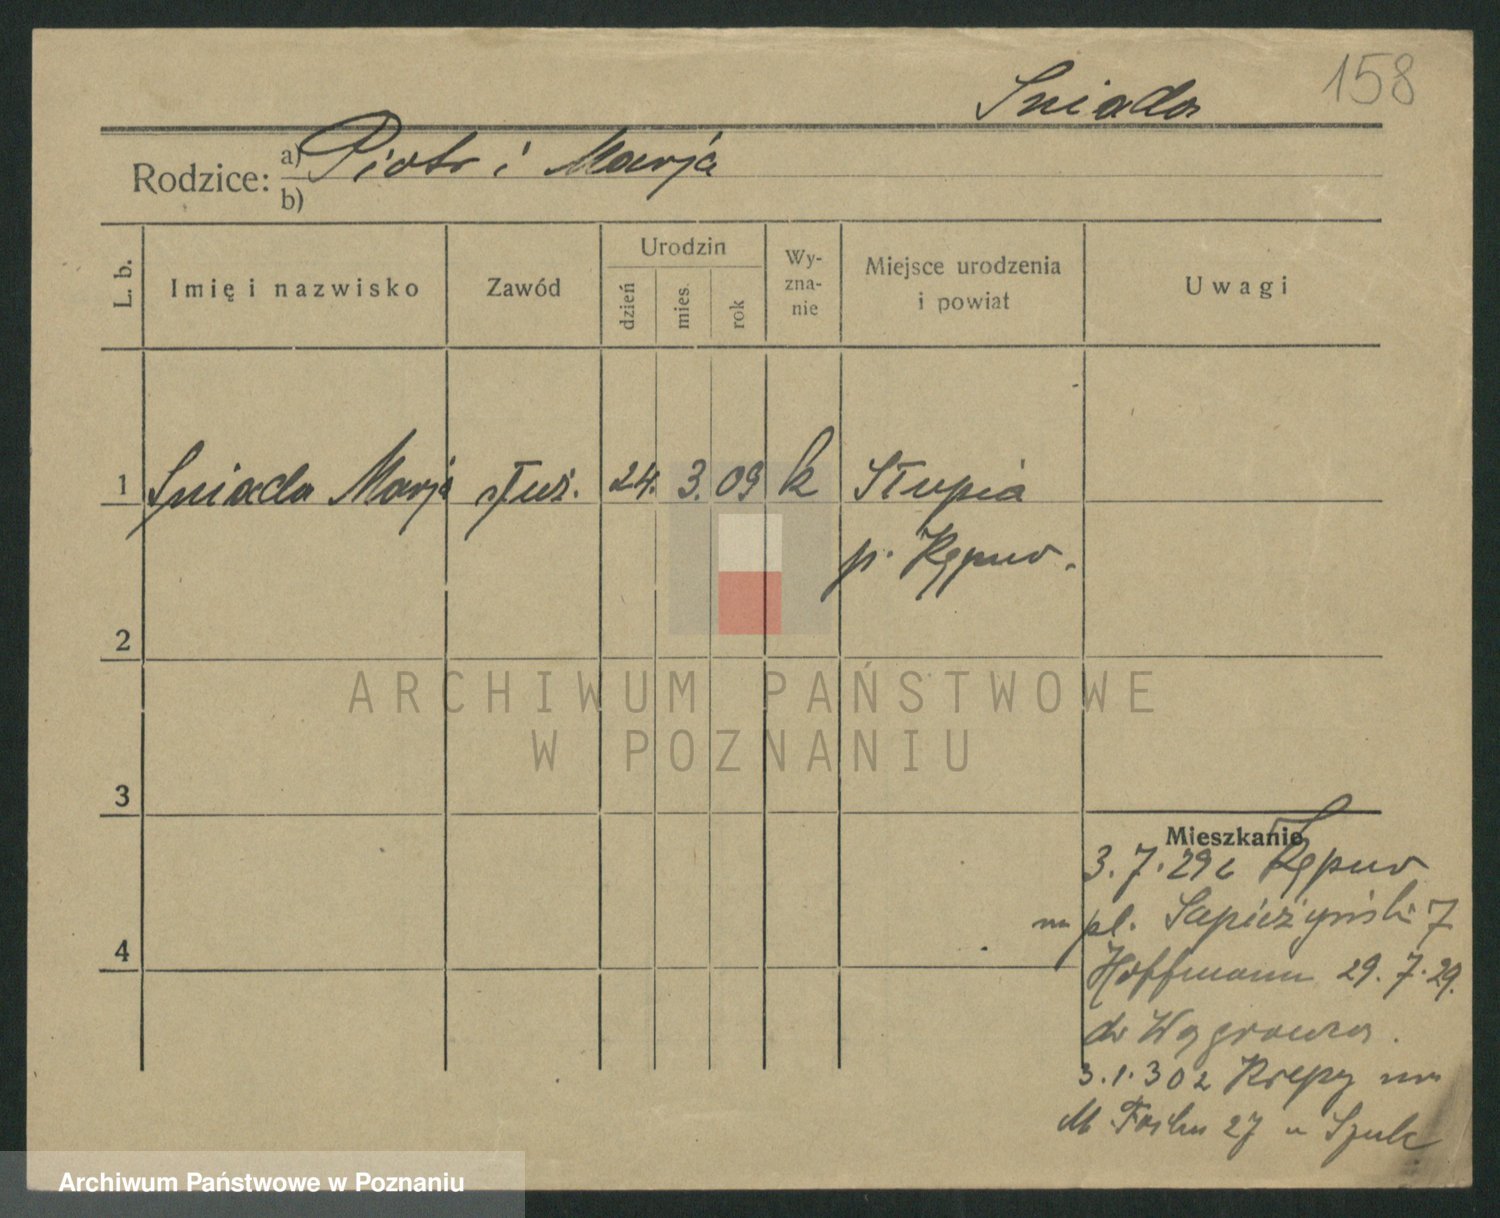 158
Sniada
Rodzice: a) Piotr i Marja
b)
L. b. Imię i nazwisko Zawód Urodzin dzień mies. rok Wyznanie Miejsce urodzenia i powiat Uwagi
1 Sniada Marja służ. 24. 3. 09 k Słupia
p. Kępno.
2
ARCHIWUM PAŃSTWOWE
W POZNANIU
3
Mieszkanie
3.7.29 z Kępno
na pl. Sapieżyński 7
4
Hoffmann 29.7.29.
do Wągrowca.
3.1.30 z Kcepy na
M Focha 27 u Szulc
Archiwum Państwowe w Poznaniu